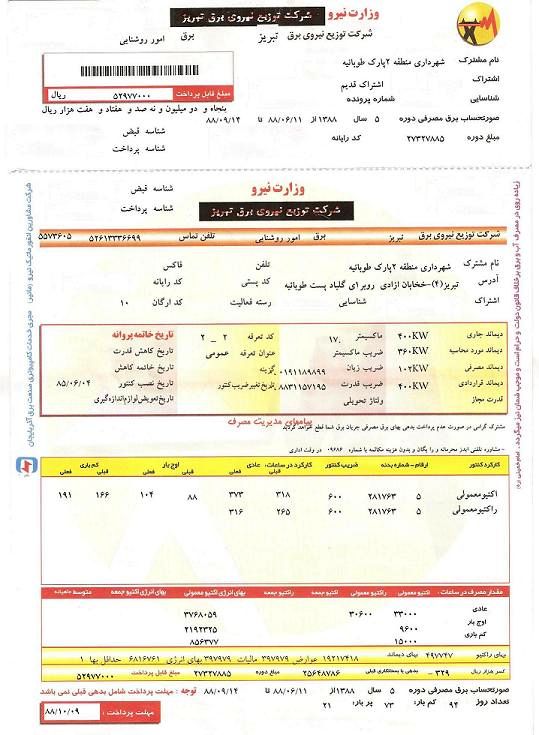 وزارت نیرو
شرکت توزیع نیروی برق تبریز
شرکت توزیع نیروی برق تبریز برق امور روشنایی
نام مشترک شهرداری منطقه ۲پارک طوبائیه
اشتراک اشتراک قدیم
شناسایی شماره پرونده
مبلغ قابل پرداخت ۵۲۹۷۷۰۰۰ ریال
پنجاه و دو میلیون و نه صد و هفتاد و هفت هزار ریال
صورتحساب برق مصرفی دوره ۵ سال ۱۳۸۸ از ۸۸/۰۶/۱۱ تا ۸۸/۰۹/۱۴
شناسه قبض
مبلغ دوره ۲۷۳۲۷۸۸۵ کد رایانه
شناسه پرداخت
وزارت نیرو
شناسه قبض
شرکت توزیع نیروی برق تبریز
شناسه پرداخت
شرکت توزیع نیروی برق تبریز برق امور روشنایی تلفن تماس ۵۲۶۱۳۳۳۶۶۹۹ ۵۵۷۳۶۰۵
نام مشترک شهرداری منطقه ۲پارک طوبائیه تلفن فاکس
آدرس تبریز(۴)-خخابان ازادی روبرای گلباد پست طوبائیه کد پستی کد رایانه
اشتراک شناسایی رسته فعالیت کد ارگان ۱۰
دیماند جاری ۴۰۰KW ماکسیمتر ۱۷. کد تعرفه ۲ _ ۲ تاریخ خاتمه پروانه
دیماند مورد محاسبه ۳۶۰KW ضریب ماکسیمتر عنوان تعرفه عمومی تاریخ کاهش قدرت
دیماند مصرفی ۱۰۲KW ضریب زیان ۰۱۹۱۱۸۹۸۹۹ گزینه تاریخ خاتمه کاهش
دیماند قراردادی ۴۰۰KW ضریب قدرت ۸۸۳۱۱۵۷۱۹۵ تاریخ تغییر ضریب کنتور تاریخ نصب کنتور ۸۵/۰۶/۰۴
قدرت مجاز ولتاژ تحویلی تاریخ تعویض لوازم اندازه گیری
پیامهای مدیریت مصرف
مشترک گرامی در صورت عدم پرداخت بدهی بهای برق مصرفی جریان برق شما قطع خواهد گردید
-مشاوره تلفنی ایدز محرمانه و رایگان و بدون هزینه مکالمه با شماره ۰۹۶۸۶ در وقت اداری
کارکرد کنتور ارقام - شماره بدنه ضریب کنتور کارکرد در ساعات: عادی اوج بار کم باری
قبلی فعلی قبلی فعلی قبلی فعلی
اکتیو معمولی ۵ ۲۸۱۷۶۳ ۶۰۰ ۳۱۸ ۳۷۳ ۸۸ ۱۰۴ ۱۶۶ ۱۹۱
راکتیو معمولی ۵ ۲۸۱۷۶۳ ۶۰۰ ۲۶۵ ۳۱۶
مقدار مصرف در ساعات : اکتیو معمولی راکتیو معمولی اکتیو جمعه راکتیو جمعه بهای انرژی اکتیو معمولی بهای انرژی اکتیو جمعه متوسط ماهیانه
عادی ۳۳۰۰۰ ۳۰۶۰۰ ۳۷۶۸۰۵۹
اوج بار ۹۶۰۰ ۲۱۹۲۳۲۵
کم باری ۱۵۰۰۰ ۸۵۶۳۷۷
بهای راکتیو ۴۹۷۷۴۷ بهای دیماند ۱۹۲۱۷۴۱۸ عوارض ۳۹۷۹۷۹ مالیات ۳۹۷۹۷۹ بهای انرژی ۶۸۱۶۷۶۱ حداقل بها ۱
کسر هزار ریال ۳۲۹- بدهی یا بستانکاری قبلی ۲۵۶۴۸۷۸۶ مبلغ دوره ۲۷۳۲۷۸۸۵ مبلغ قابل پرداخت ۵۲۹۷۷۰۰۰
صورتحساب برق مصرفی دوره ۵ سال ۱۳۸۸ از ۸۸/۰۶/۱۱ تا ۸۸/۰۹/۱۴ توجه : مهلت پرداخت شامل بدهی قبلی نمی باشد
تعداد روز ۹۴ کم بار: ۷۳ پر بار: ۲۱
مهلت پرداخت : ۸۸/۱۰/۰۹